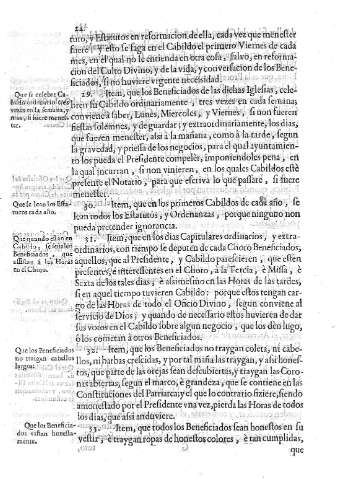 24
turo, y Estatutos en reformacion de ella, cada vez que menester
fuere, y esto se faga en el Cabildo el primer Viernes de cada
mes, en el qual no se entienda en otra cosa, salvo, en reforma-
cion del Culto Divino, y de la vida, y conversacion de los Bene-
ficiados, si no huviere vigente necesidad.
Que se celebre Ca-
bildo ordinario tres
vezes en la semana, y
mas, si fuere menes-
ter.
29. Item, que los Beneficiados de las dichas Iglesias, cele-
bren su Cabildo ordinariamente, tres vezes en cada semana;
conviene a saber, Lunes, Miercoles, y Viernes, si non fueren
fiestas solemnes, y de guardar; y extraordinariamente, los dias,
que fueren menester, assi à la mañana, como à la tarde, segun
la gravedad, y priesa de los negocios, para el qual ayuntamien-
to los pueda el Presidente compeler, imponiendoles pena, en
la qual incurran, si non vinieren, en los quales Cabildos estè
presente el Notario, para que escriva lo que passare, si fuere
menester.
Que se lean los Esta-
tutos cada año.
30. Item, que en los primeros Cabildos de cada año, se
lean todos los Estatutos, y Ordenanzas, porque ninguno non
pueda pretender ignorancia.
Que quando estàn en
Cabildo, señalen
Beneficiados, que
assistan à las Horas
en el Choro.
31. Item, que en los dias Capitulares ordinarios, y extra-
ordinarios, con tiempo se deputen de cada Choro Beneficiados,
aquellos, que al Presidente, y Cabildo parescieren, que estèn
presentes, è interessentes en el Choro, à la Tercia, è Missa, è
Sexta de los tales dias, è assimesmo en las Horas de las tardes,
si en aquel tiempo tuvieren Cabildo: porque estos tengan car-
go de las Horas de todo el Oficio Divino, segun conviene al
servicio de Dios, y quando de necesario estos huvieren de dar
sus votos en el Cabildo sobre algun negocio, que los dèn luego,
ò los cometan à otros Beneficiados.
Que los Beneficiados
no traygan cabellos
largos.
32. Item, que los Beneficiados no traygan coleta, ni cabe-
llos, ni barbas crescidas, y por tal maña las traygan, y assi hones-
tos, que parte de las orejas sean descubiertas, y traygan las Coro-
nas abiertas, segun el marco, è grandeza, que se contiene en las
Constituciones del Patriarca; y el que lo contrario fiziere, siendo
amonestado por el Presidente una vez, pierda las Horas de todos
los dias, que assi anduviere.
Que los Beneficia-
dos vistan honesta-
mente.
33. Item, que todos los Beneficiados sean honestos en su
vestir, è traygan ropas de honestos colores, è tan cumplidas,
que